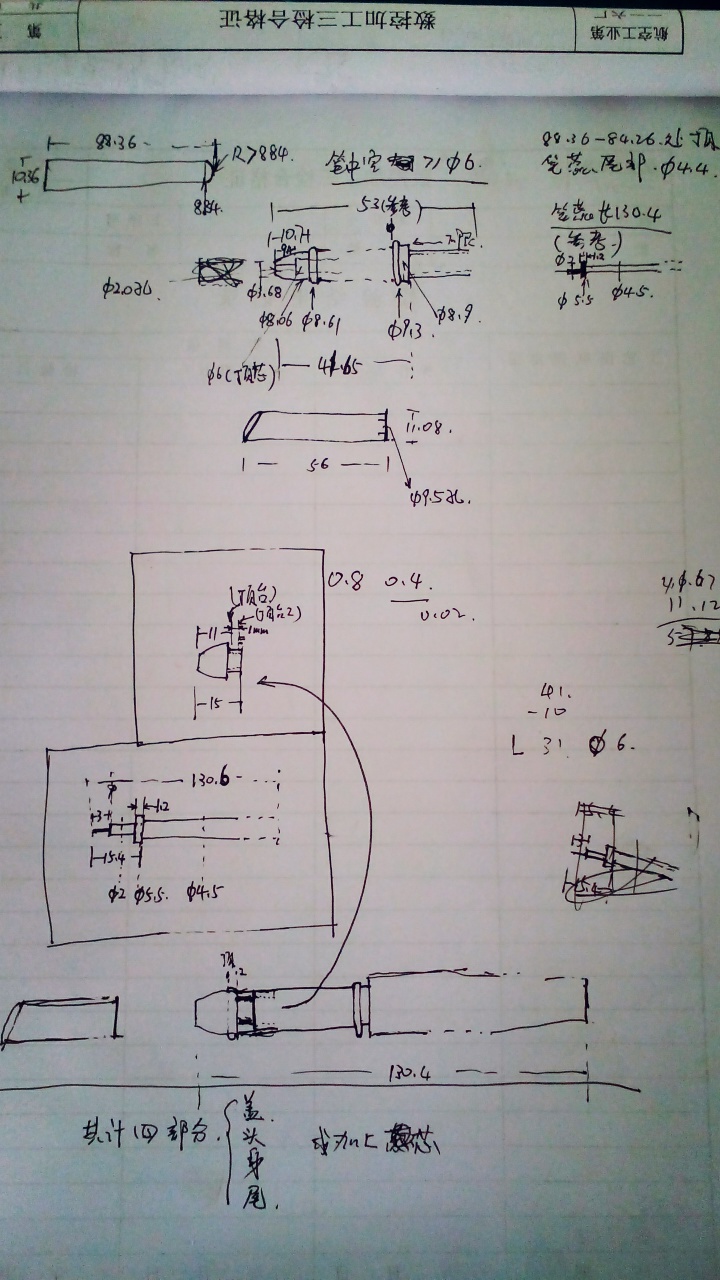 航空工业第
一一六厂
数控加工三检合格证
第
88.36
R>8.84.
10.36
8.84.
笔中空 ≥Φ6.
88.36-84.26.处顶
笔芯尾部.Φ4.4.
53(参考)
笔芯长130.4
(参考)
10.71
不限.
Φ2.036.
Φ3.68
Φ8.06
Φ8.61
Φ9.3
Φ8.9.
1.2
Φ5.5
Φ4.5.
Φ6(顶芯)
41.65
11.08.
56
Φ9.536.
0.8
0.4.
0.02.
(顶台1)
(顶台2)
11
1mm
15
11.12
41.
-10
L 31 Φ6.
130.6
1.2
3
15.4
Φ2
Φ5.5.
Φ4.5
130.4
共计四部分.
盖.
头
身
尾.
或加上芯